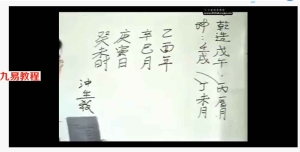 乾造戊午:丙辰月
坤:壬戌丁未月
乙酉年
辛巳月
庚寅日
癸未时
沖生教
九易教程